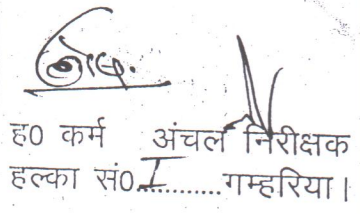 ह0 कर्म अंचल निरीक्षक
हल्का सं0..I..........गम्हरिया।